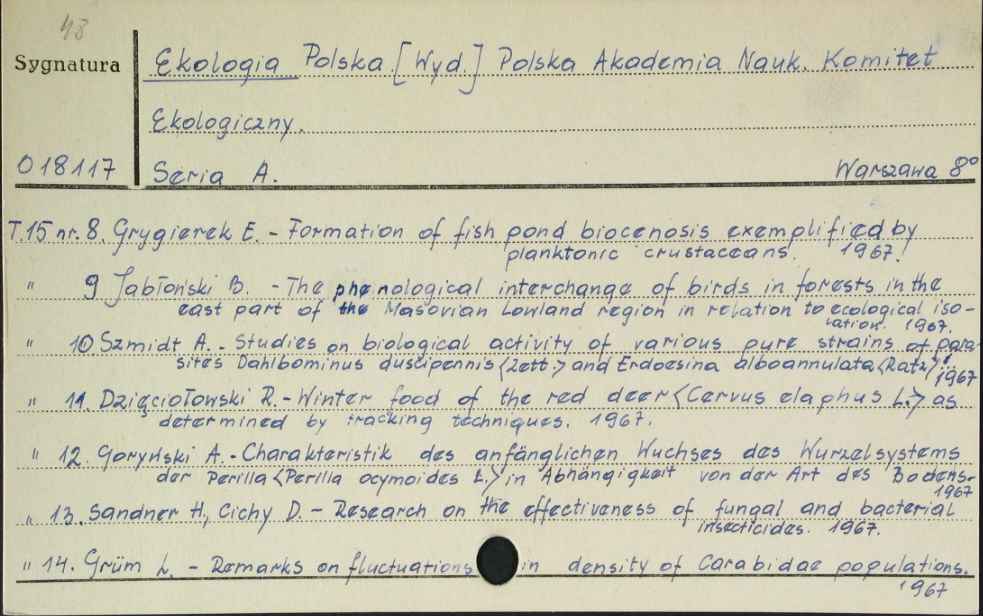 43
Sygnatura
Ekologia Polska. [Wyd.] Polska Akademia Nauk. Komitet
Ekologiczny.
018117
Seria A.
Warszawa 8°
T.15 nr. 8. Grygierek E. - Formation of fish pond biocenosis exemplified by
planktonic crustaceans. 1967.
" 9 Jabłoński B. - The phenological interchange of birds in forests in the
east part of the Masovian Lowland region in relation to ecological iso-
lation. 1967.
" 10 Szmidt A. - Studies on biological activity of various pure strains of para-
sites Dahlbominus fuscipennis <Zett.> and Erdoesina alboannulata <Ratz>.
1967
" 11. Dzięciołowski R. - Winter food of the red deer <Cervus elaphus L.> as
determined by tracking techniques. 1967.
" 12. Goryński A. - Charakteristik des anfänglichen Wuchses des Wurzelsystems
der Perilla <Perilla ocymoides L.> in Abhängigkeit von der Art des Bodens.
1967
" 13. Sandner H., Cichy D. - Research on the effectiveness of fungal and bacterial
insecticides. 1967.
" 14. Grüm L. - Remarks on fluctuations in density of Carabidae populations.
1967